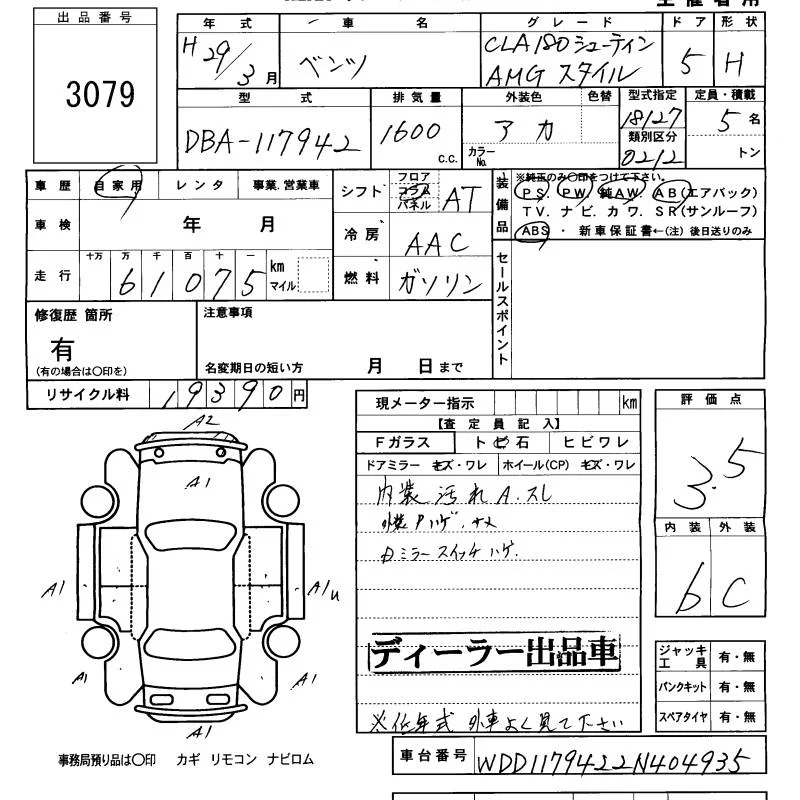 主催者用
出品番号
3079
年式 車名 グレード ドア 形状
H29/3月 ベンツ CLA180シューティン
AMGスタイル 5 H
型式 排気量 外装色 色替 型式指定 定員・積載
DBA-117942 1600 c.c. アカ カラーNo. 18127 5名
類別区分
0212 トン
車歴 自家用 レンタ 事業.営業車
シフト フロア コラム パネル AT
装備品 ※純正のみ〇印をつけて下さい。
PS. PW. 純AW. AB(エアバック)
TV. ナビ. カワ. SR(サンルーフ)
ABS ・ 新車保証書←(注) 後日送りのみ
車検 年 月
冷房 AAC
走行 十万 万 千 百 十 一
61075 km マイル
燃料 ガソリン
セールスポイント
修復歴 箇所
有
(有の場合は〇印を)
注意事項
名変期日の短い方 月 日まで
リサイクル料 19390円
現メーター指示 km
【査定員記入】
Fガラス トビ石 ヒビワレ
ドアミラー キズ・ワレ ホイール(CP) キズ・ワレ
内装汚れA.スレ
外装Pハゲ.
ミラースイッチハゲ.
ディーラー出品車
※低年式 外車よく見て下さい
評価点
3.5
内装 外装
b C
A2
A1
A1
A1u
A1
A1
A1
ジャッキ工具 有・無
パンクキット 有・無
スペアタイヤ 有・無
事務局預り品は〇印 カギ リモコン ナビロム
車台番号 WDD1179422N404935